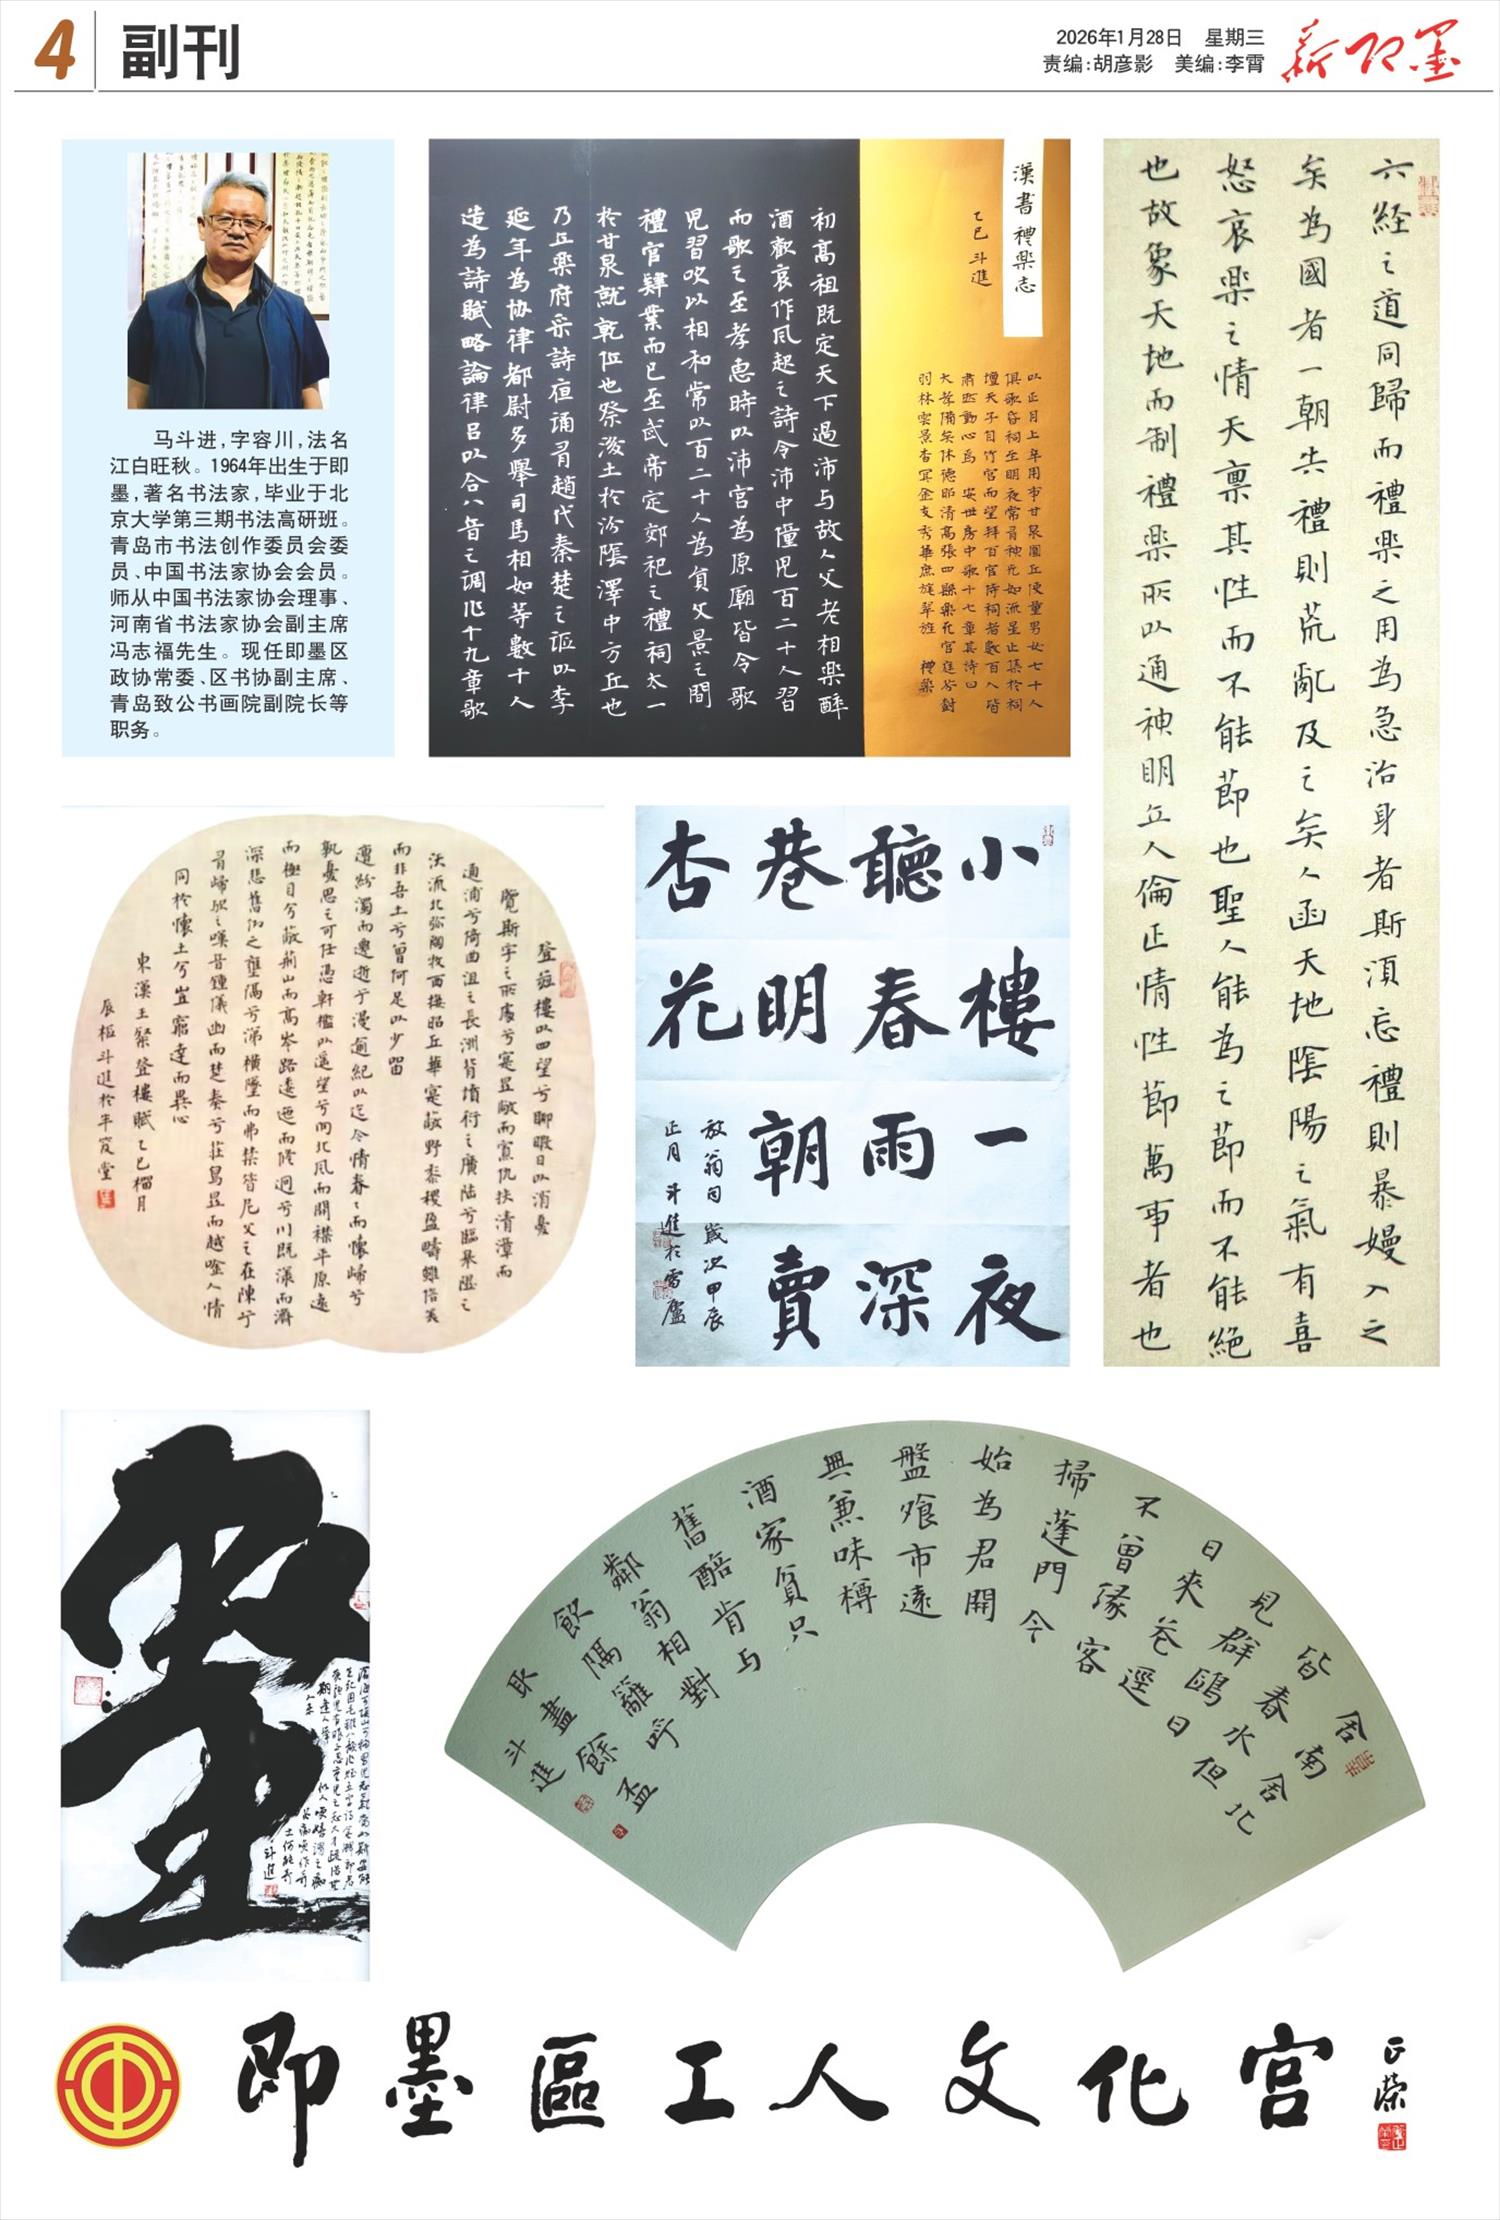 4
副刊
2026年1月28日 星期三
责编:胡彦影 美编:李霄
新即墨
马斗进,字容川,法名
江白旺秋。1964年出生于即
墨,著名书法家,毕业于北
京大学第三期书法高研班。
青岛市书法创作委员会委
员、中国书法家协会会员。
师从中国书法家协会理事、
河南省书法家协会副主席
冯志福先生。现任即墨区
政协常委、区书协副主席、
青岛致公书画院副院长等
职务。
漢書禮樂志
乙巳 斗進
初高祖既定天下過沛与故人父老相樂醉
酒歡哀作風起之詩令沛中僮兒百二十人習
而歌之至孝惠時以沛宮為原廟皆令歌
兒習吹以相和常以百二十人為員文景之間
禮官肄業而已至武帝定郊祀之禮祠太一
於甘泉就乾位也祭后土於汾陰澤中方丘也
乃立樂府采詩夜誦有趙代秦楚之謳以李
延年為協律都尉多舉司馬相如等數十人
造為詩賦略論律呂以合八音之調作十九章歌
以正月上辛用事甘泉圜丘使童男女七十人
俱歌昏祠至明夜常有神光如流星止集於祠
壇天子自竹宮而望拜百官侍祠者數百人皆
肅然動心焉 安世房中歌十七章其詩曰
大孝備矣休德昭清高張四縣樂充宮庭芬樹
羽林雲景杳冥金支秀華庶旄翠旌 禮樂
六経之道同歸而禮樂之用為急治身者斯須忘禮則暴嫚入之
矣為國者一朝失禮則荒亂及之矣人函天地陰陽之氣有喜
怒哀樂之情天稟其性而不能節也聖人能為之節而不能絕
也故象天地而制禮樂所以通神明立人倫正情性節萬事者也
登茲樓以四望兮聊暇日以消憂
覽斯宇之所處兮寔顯敞而寡仇扶清漳而
通浦兮倚曲沮之長洲背墳衍之廣陸兮臨皋隰之
沃流北弥陶牧西接昭丘華寔蔽野黍稷盈疇雖信美
而非吾土兮曾何足以少留
遭紛濁而遷逝兮漫逾紀以迄今情眷眷而懷歸兮
孰憂思之可任憑軒檻以遥望兮向北風而開襟平原遠
而極目兮蔽荊山而高岑路逶迤而修迥兮川既漾而濟
深悲舊鄉之壅隔兮涕橫墜而弗禁昔尼父之在陳兮
有歸歟之嘆音鍾儀幽而楚奏兮莊舄顯而越吟人情
同於懷土兮豈窮達而異心
東漢王粲登樓賦乙巳榴月
斗進於半虔堂
小樓一夜
聽春雨深
巷明朝賣
杏花
放翁句 歲次甲辰
正月 斗進於雪廬
斗進
舍南
舍北
皆春水但
見群鷗日
日來花逕
不曾缘客
掃蓬門今
始為君開
盤飧市遠
無兼味樽
酒家貧只
舊醅肯与
鄰翁相對
飲隔籬呼
取盡餘盃
斗進
即墨區工人文化宫